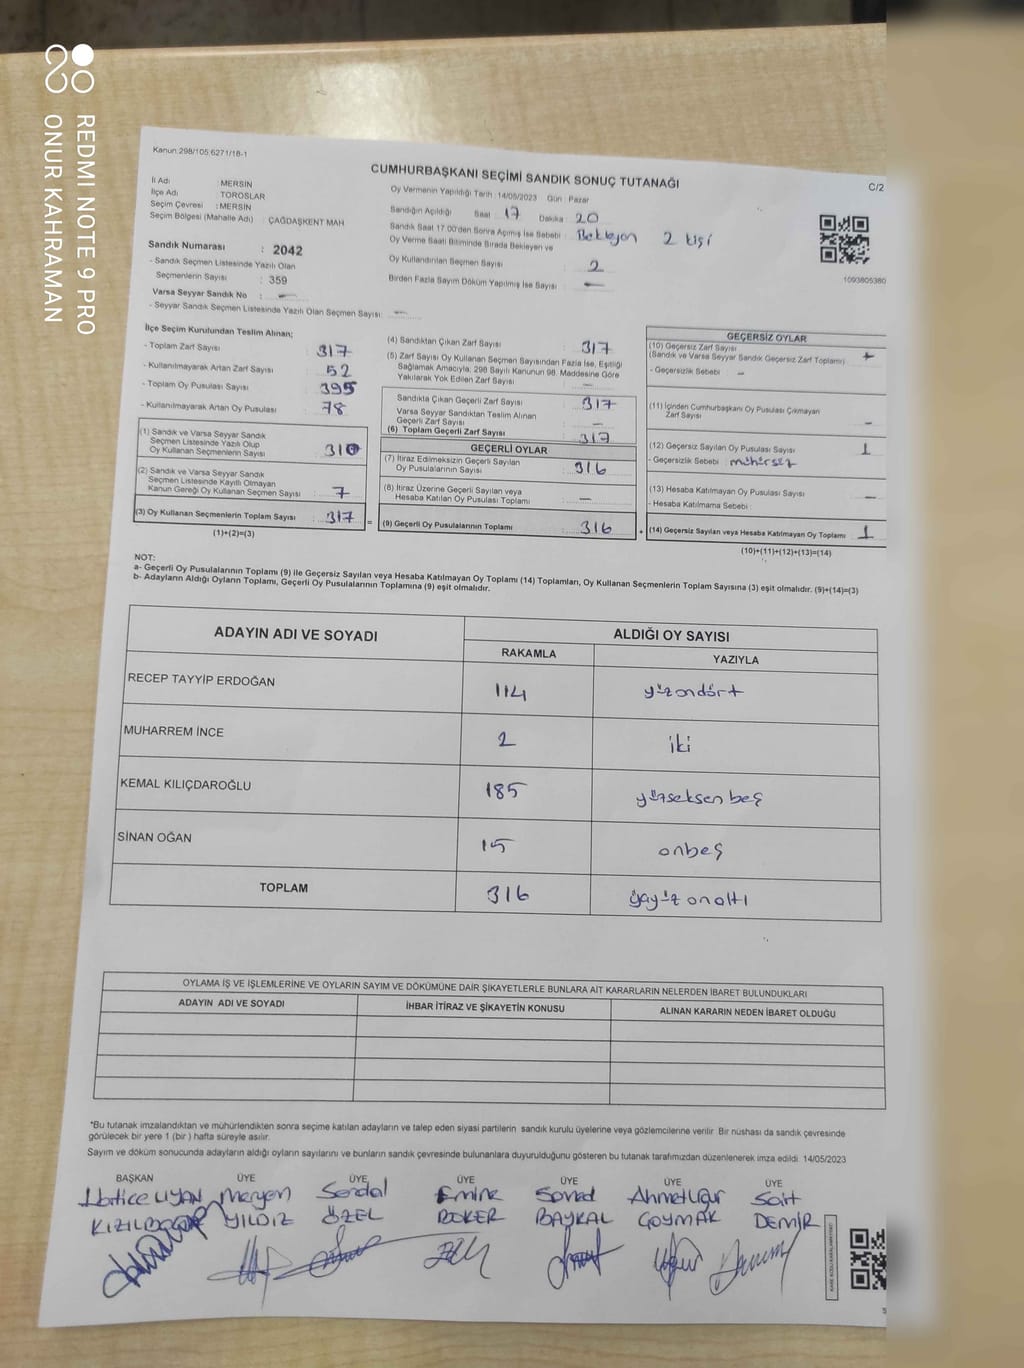 REDMI NOTE 9 PRO
ONUR KAHRAMAN
Kanun:298/105,6271/18-1
CUMHURBAŞKANI SEÇİMİ SANDIK SONUÇ TUTANAĞI
C/2
İl Adı : MERSİN
İlçe Adı : TOROSLAR
Seçim Çevresi : MERSİN
Seçim Bölgesi (Mahalle Adı) : ÇAĞDAŞKENT MAH
Sandık Numarası : 2042
- Sandık Seçmen Listesinde Yazılı Olan
Seçmenlerin Sayısı : 359
Varsa Seyyar Sandık No : -
- Seyyar Sandık Seçmen Listesinde Yazılı Olan Seçmen Sayısı: -
Oy Vermenin Yapıldığı Tarih :14/05/2023 Gün : Pazar
Sandığın Açıldığı Saat 17 Dakika 20
Sandık Saat 17:00'den Sonra Açılmış İse Sebebi : Bekleyen 2 kişi
Oy Verme Saati Bitiminde Sırada Bekleyen ve
Oy Kullandırılan Seçmen Sayısı : 2
Birden Fazla Sayım Döküm Yapılmış İse Sayısı : -
1093805380
İlçe Seçim Kurulundan Teslim Alınan;
- Toplam Zarf Sayısı : 317
- Kullanılmayarak Artan Zarf Sayısı : 52
- Toplam Oy Pusulası Sayısı : 395
- Kullanılmayarak Artan Oy Pusulası : 78
(1) Sandık ve Varsa Seyyar Sandık
Seçmen Listesinde Yazılı Olup
Oy Kullanan Seçmenlerin Sayısı : 310
(2) Sandık ve Varsa Seyyar Sandık
Seçmen Listesinde Kayıtlı Olmayan
Kanun Gereği Oy Kullanan Seçmen Sayısı : 7
(3) Oy Kullanan Seçmenlerin Toplam Sayısı : 317
(1)+(2)=(3)
(4) Sandıktan Çıkan Zarf Sayısı : 317
(5) Zarf Sayısı Oy Kullanan Seçmen Sayısından Fazla İse, Eşitliği
Sağlamak Amacıyla, 298 Sayılı Kanunun 98. Maddesine Göre
Yakılarak Yok Edilen Zarf Sayısı : -
Sandıkta Çıkan Geçerli Zarf Sayısı : 317
Varsa Seyyar Sandıktan Teslim Alınan
Geçerli Zarf Sayısı : -
(6) Toplam Geçerli Zarf Sayısı : 317
GEÇERLİ OYLAR
(7) İtiraz Edilmeksizin Geçerli Sayılan
Oy Pusulalarının Sayısı : 316
(8) İtiraz Üzerine Geçerli Sayılan veya
Hesaba Katılan Oy Pusulası Toplamı : -
= (9) Geçerli Oy Pusulalarının Toplamı : 316
GEÇERSİZ OYLAR
(10) Geçersiz Zarf Sayısı
(Sandık ve Varsa Seyyar Sandık Geçersiz Zarf Toplamı)
- Geçersizlik Sebebi : -
(11) İçinden Cumhurbaşkanı Oy Pusulası Çıkmayan
Zarf Sayısı : -
(12) Geçersiz Sayılan Oy Pusulası Sayısı : 1
- Geçersizlik Sebebi : mühürsüz
(13) Hesaba Katılmayan Oy Pusulası Sayısı : -
- Hesaba Katılmama Sebebi :
+ (14) Geçersiz Sayılan veya Hesaba Katılmayan Oy Toplamı : 1
(10)+(11)+(12)+(13)=(14)
NOT:
a- Geçerli Oy Pusulalarının Toplamı (9) ile Geçersiz Sayılan veya Hesaba Katılmayan Oy Toplamı (14) Toplamları, Oy Kullanan Seçmenlerin Toplam Sayısına (3) eşit olmalıdır. (9)+(14)=(3)
b- Adayların Aldığı Oyların Toplamı, Geçerli Oy Pusulalarının Toplamına (9) eşit olmalıdır.
ADAYIN ADI VE SOYADI
ALDIĞI OY SAYISI
RAKAMLA YAZIYLA
RECEP TAYYİP ERDOĞAN 114 yüzondört
MUHARREM İNCE 2 iki
KEMAL KILIÇDAROĞLU 185 yüzseksen beş
SİNAN OĞAN 15 onbeş
TOPLAM 316 üçyüz onaltı
OYLAMA İŞ VE İŞLEMLERİNE VE OYLARIN SAYIM VE DÖKÜMÜNE DAİR ŞİKAYETLERLE BUNLARA AİT KARARLARIN NELERDEN İBARET BULUNDUKLARI
ADAYIN ADI VE SOYADI İHBAR İTİRAZ VE ŞİKAYETİN KONUSU ALINAN KARARIN NEDEN İBARET OLDUĞU
*Bu tutanak imzalandıktan ve mühürlendikten sonra seçime katılan adayların ve talep eden siyasi partilerin sandık kurulu üyelerine veya gözlemcilerine verilir. Bir nüshası da sandık çevresinde
görülecek bir yere 1 (bir) hafta süreyle asılır.
Sayım ve döküm sonucunda adayların aldığı oyların sayılarını ve bunların sandık çevresinde bulunanlara duyurulduğunu gösteren bu tutanak tarafımızdan düzenlenerek imza edildi. 14/05/2023
BAŞKAN ÜYE ÜYE ÜYE ÜYE ÜYE ÜYE
Hatice UYAN Meryem Serdal Emine Soned Ahmet Uğur Sait
YILDIZ ÖZEL BOKER BAYKAL GOYMAK DEMİR